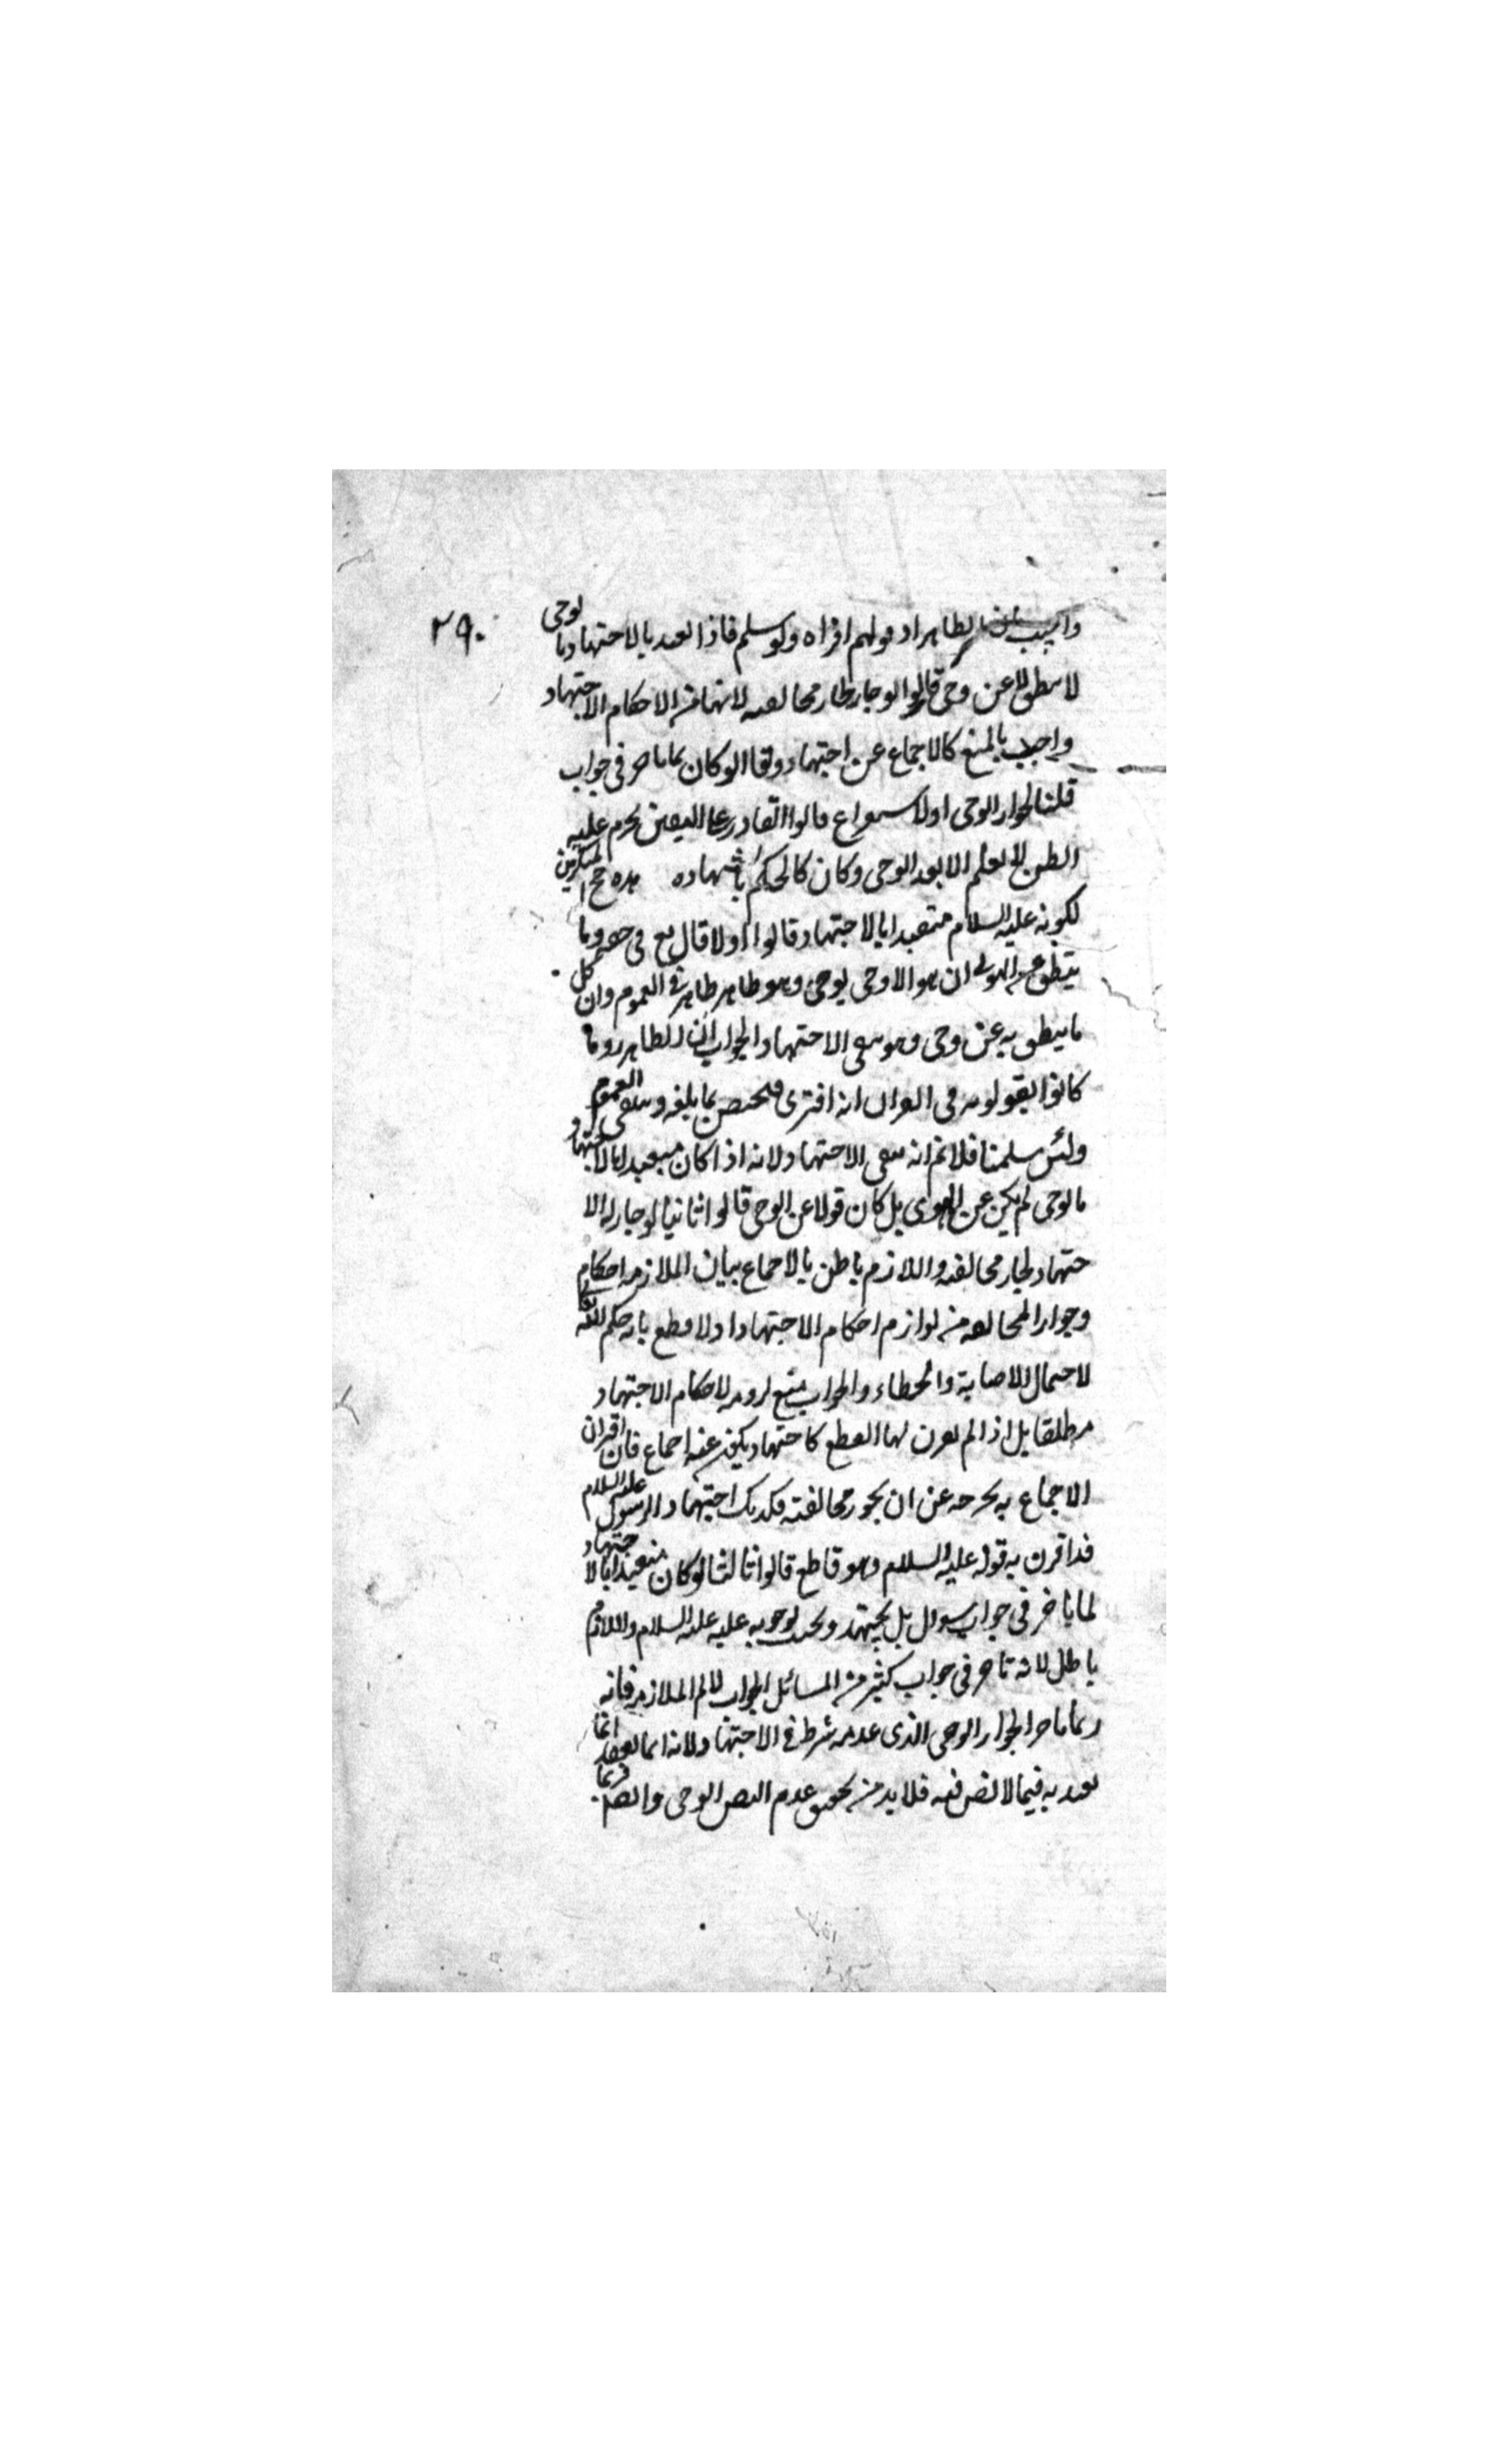 ٢٩٠
واجيب بان الظاهر اد قولهم افتراه ولو سلم فاذا تعبد بالاجتهاد بالوحى
لا ينطق الا عن وحى قالوا لو جاز لجاز مخالفته لانها من الاحكام الاجتهاد
واجيب بالمنع كالاجماع عن اجتهاد وقالوا لو كان لما تاخر فى جواب
قلنا لجواز الوحى اولا قالوا القادر على اليقين يحرم عليه
الظن لا يعلم الا بعد الوحى وكان كالحكم بالشهاده هذه حجج المنكرين
لكونه عليه السلام متعبدا بالاجتهاد قالوا اولا قال تع فى حقه وما
ينطق عن الهوى ان هو الا وحى يوحى وهو ظاهر ظاهر فى العموم وان كل
ما ينطق به عن وحى وهو ينفى الاجتهاد الجواب ان الظاهر رد ما
كانوا يقولونه فى القران انه افترى فيختص بما بلغه وينتفى العموم
ولئن سلمنا فلا نم انه ينفى الاجتهاد لانه اذا كان متعبدا بالاجتهاد
بالوحى لم يكن عن الهوى بل كان قولا عن الوحى قالوا ثانيا لو جاز له الا
جتهاد لجاز مخالفته واللازم باطل بالاجماع بيان الملازمه احكام
وجواز المخالفه من لوازم احكام الاجتهاد اذ لا قطع بانه حكم الله تعالى
لاحتمال الاصابة والخطاء والجواب منع لزومه لاحكام الاجتهاد
مطلقا بل اذا لم يقرن لها القطع كاجتهاد يكون عنه اجماع فان اقتران
الاجماع به يخرجه عن ان يجوز مخالفته فكذلك اجتهاد الرسول عليه السلام
قد اقترن به قوله عليه السلام وهو قاطع قالوا ثالثا لو كان متعبدا بالاجتهاد
لما تاخر فى جواب سوال بل يجتهد ويجيب لوجوبه عليه عليه السلام واللازم
باطل لانه تاخر فى جواب كثير من المسائل الجواب لا نم الملازمه فانه
ربما تاخر لجواز الوحى الذى عدمه شرط فى الاجتهاد لانه انما
تعبد به فيما لا نص فيه فلا بد من تحقق عدم النص الوحى وايضا فربما